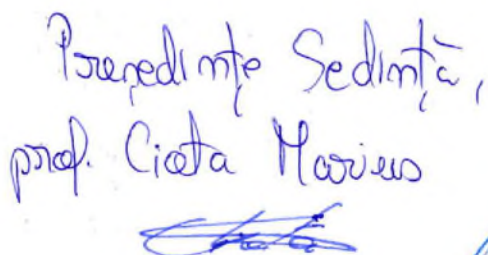 Președinte Sedință,
prof. Ciata Marius